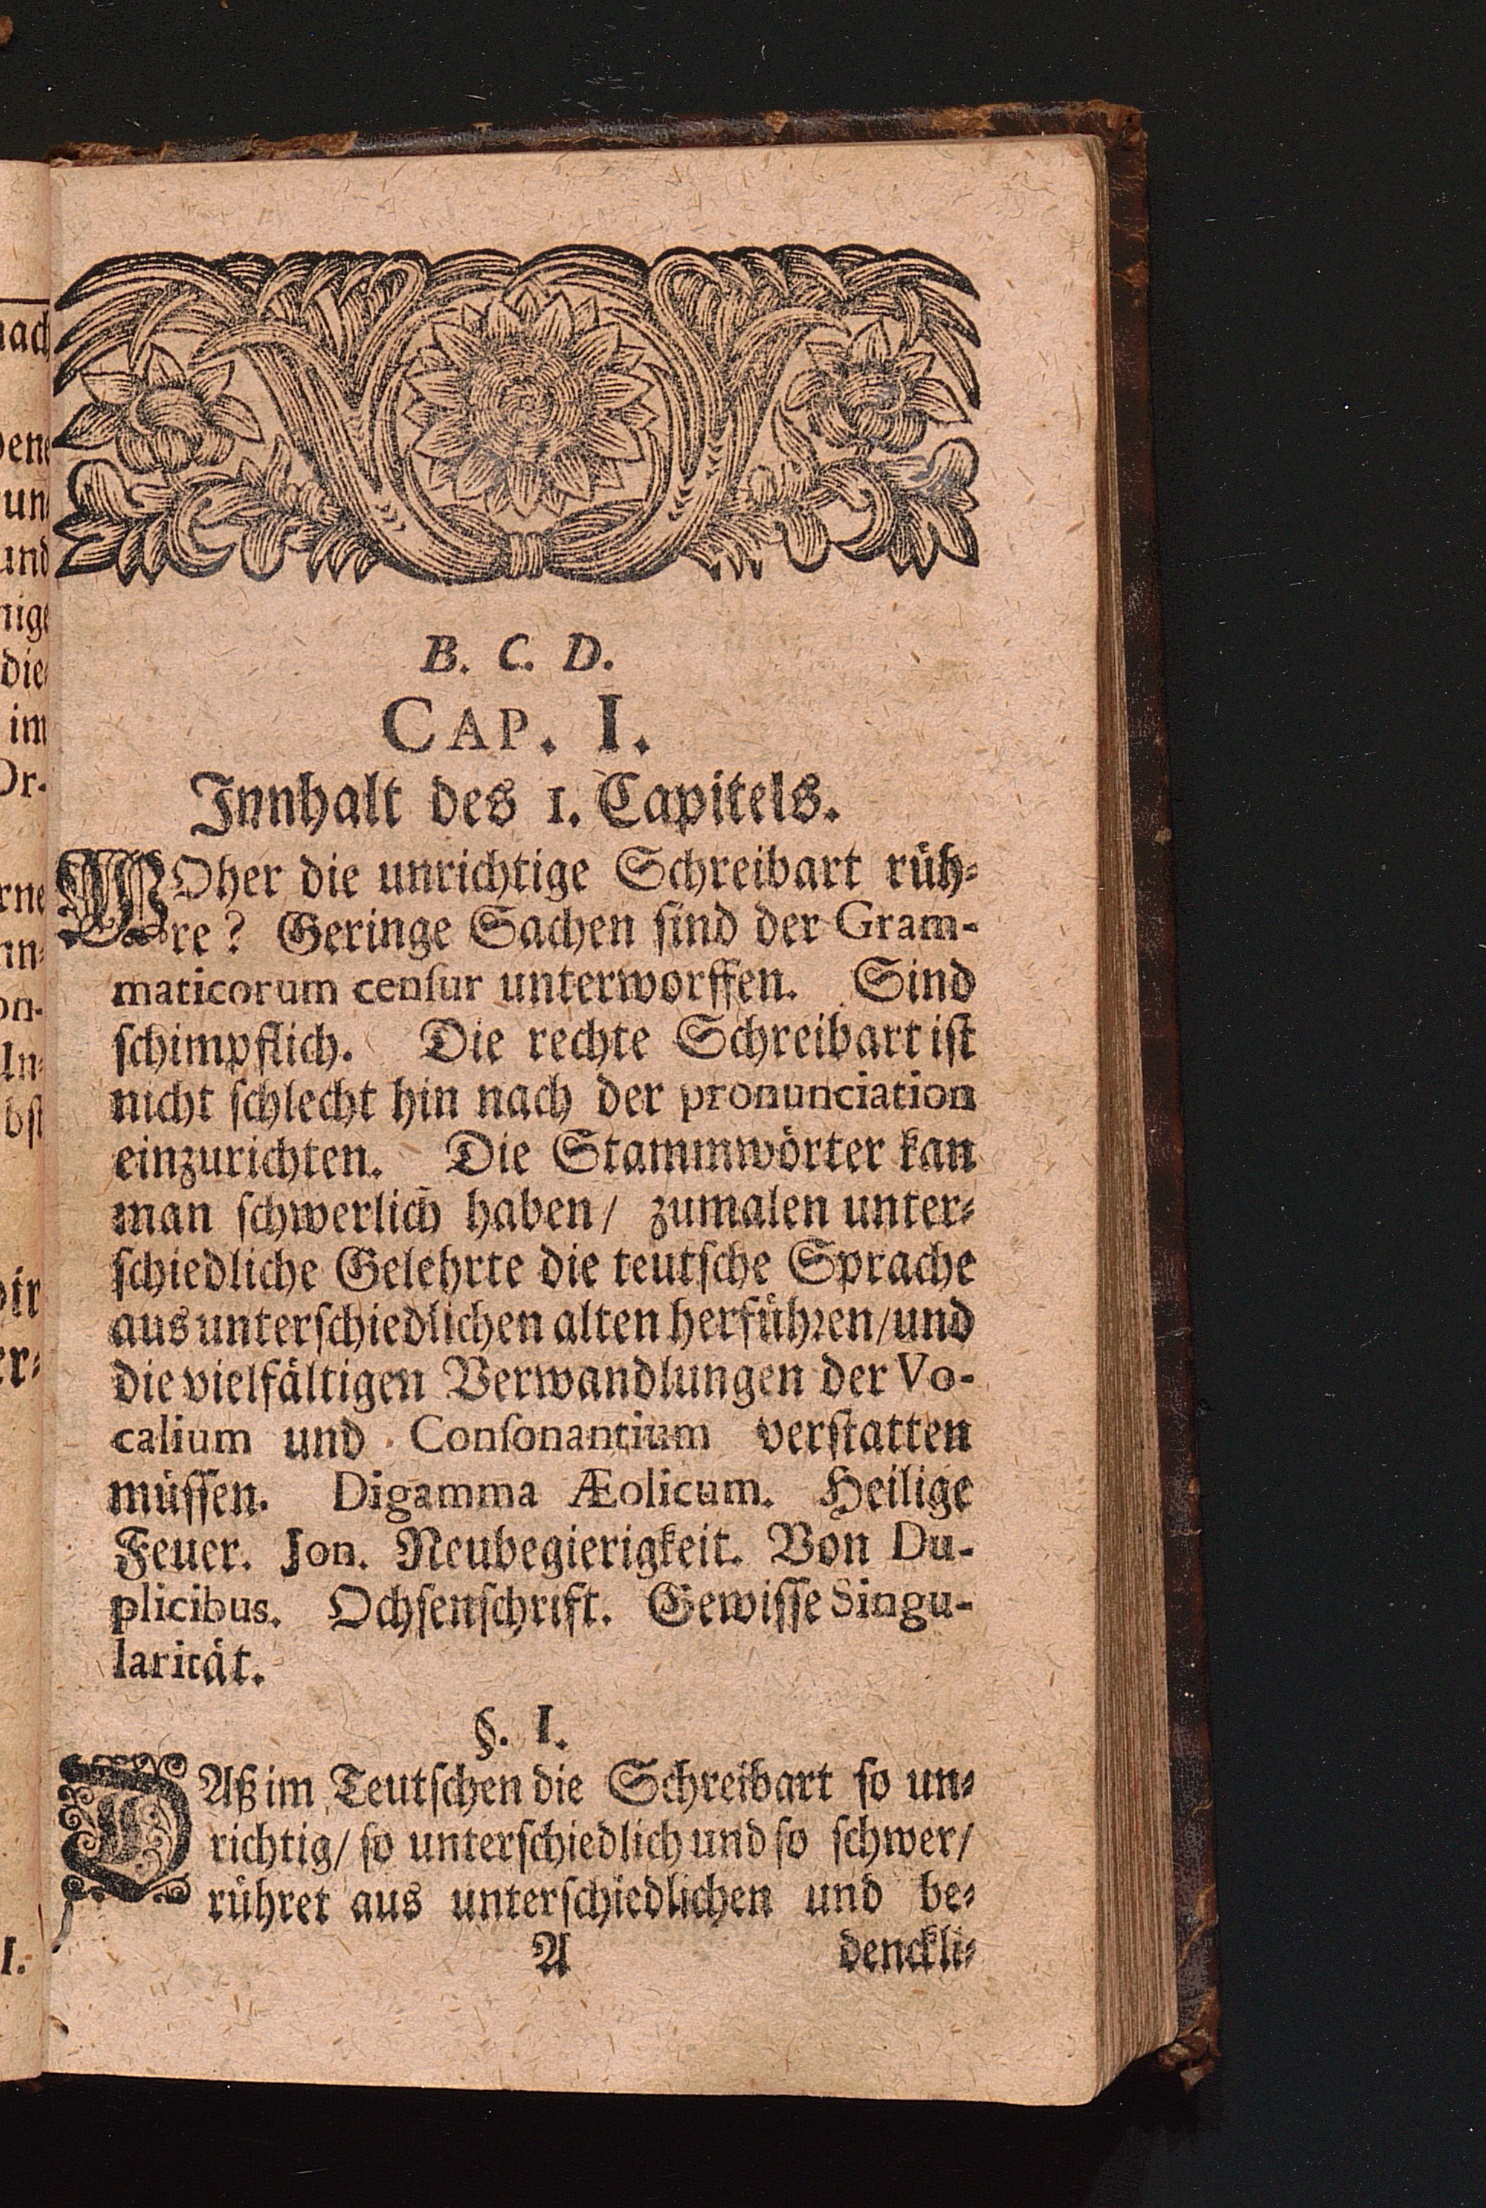 B. C. D.
CAP. I.
Innhalt des 1. Capitels.
WOher die unrichtige Schreibart rüh⸗
re? Geringe Sachen sind der Gram-
maticorum censur unterworffen. Sind
schimpflich. Die rechte Schreibart ist
nicht schlecht hin nach der pronunciation
einzurichten. Die Stammwörter kan
man schwerlich haben/ zumalen unter⸗
schiedliche Gelehrte die teutsche Sprache
aus unterschiedlichen alten herführen/und
die vielfältigen Verwandlungen der Vo-
calium und Consonantium verstatten
müssen. Digamma Æolicum. Heilige
Feuer. Jon. Neubegierigkeit. Von Du-
plicibus. Ochsenschrift. Gewisse Singu-
larität.
§. I.
DAß im Teutschen die Schreibart so un⸗
richtig/ so unterschiedlich und so schwer/
rühret aus unterschiedlichen und be⸗
A denckli⸗